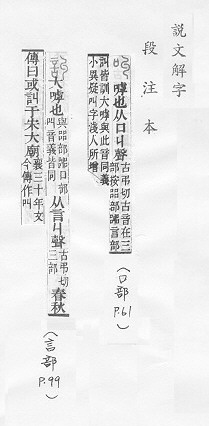 說文解字
段注本
嘑也从口丩聲古弔切古音在三部按㗊部嘂言部
訆皆訓大嘑與此音同義小異疑叫字淺人所增
(口部 P.61)
大嘑也與㗊部嘂口部叫音義皆同从言丩聲古弔切三部春秋
傳曰或訆于宋大廟襄三十年文今傳作叫
(言部 P.99)